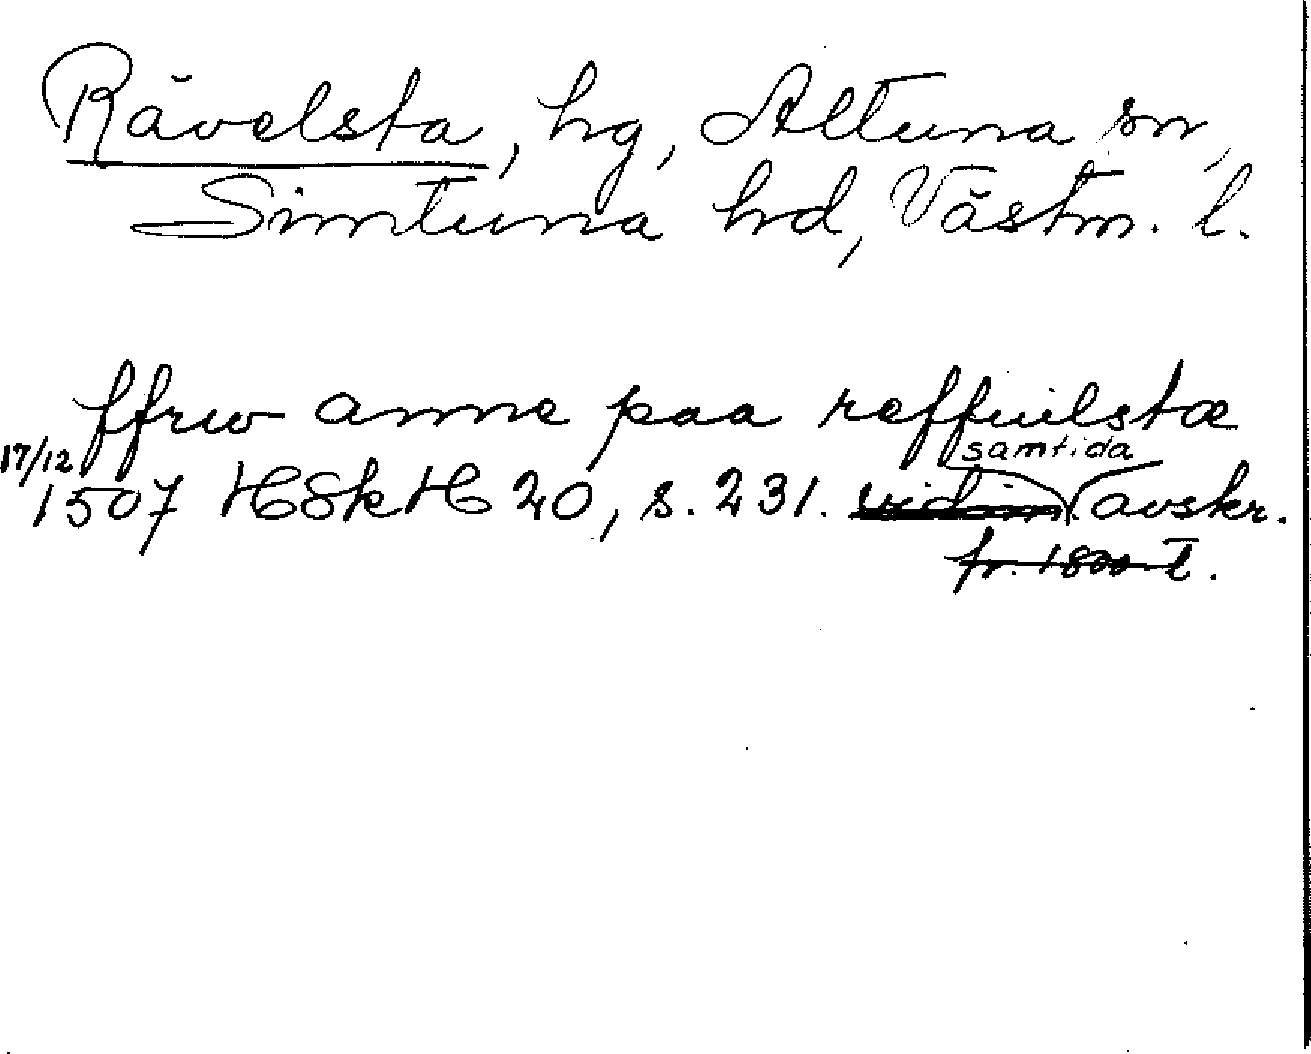 Rävelsta, hg, Altuna sn,
Simtuna hd, Västm. l.
ffrw anne paa reffuilstæ
samtida
17/12 1507 HSkH 20, s. 231. vidim. avskr.
fr. 1800-t.